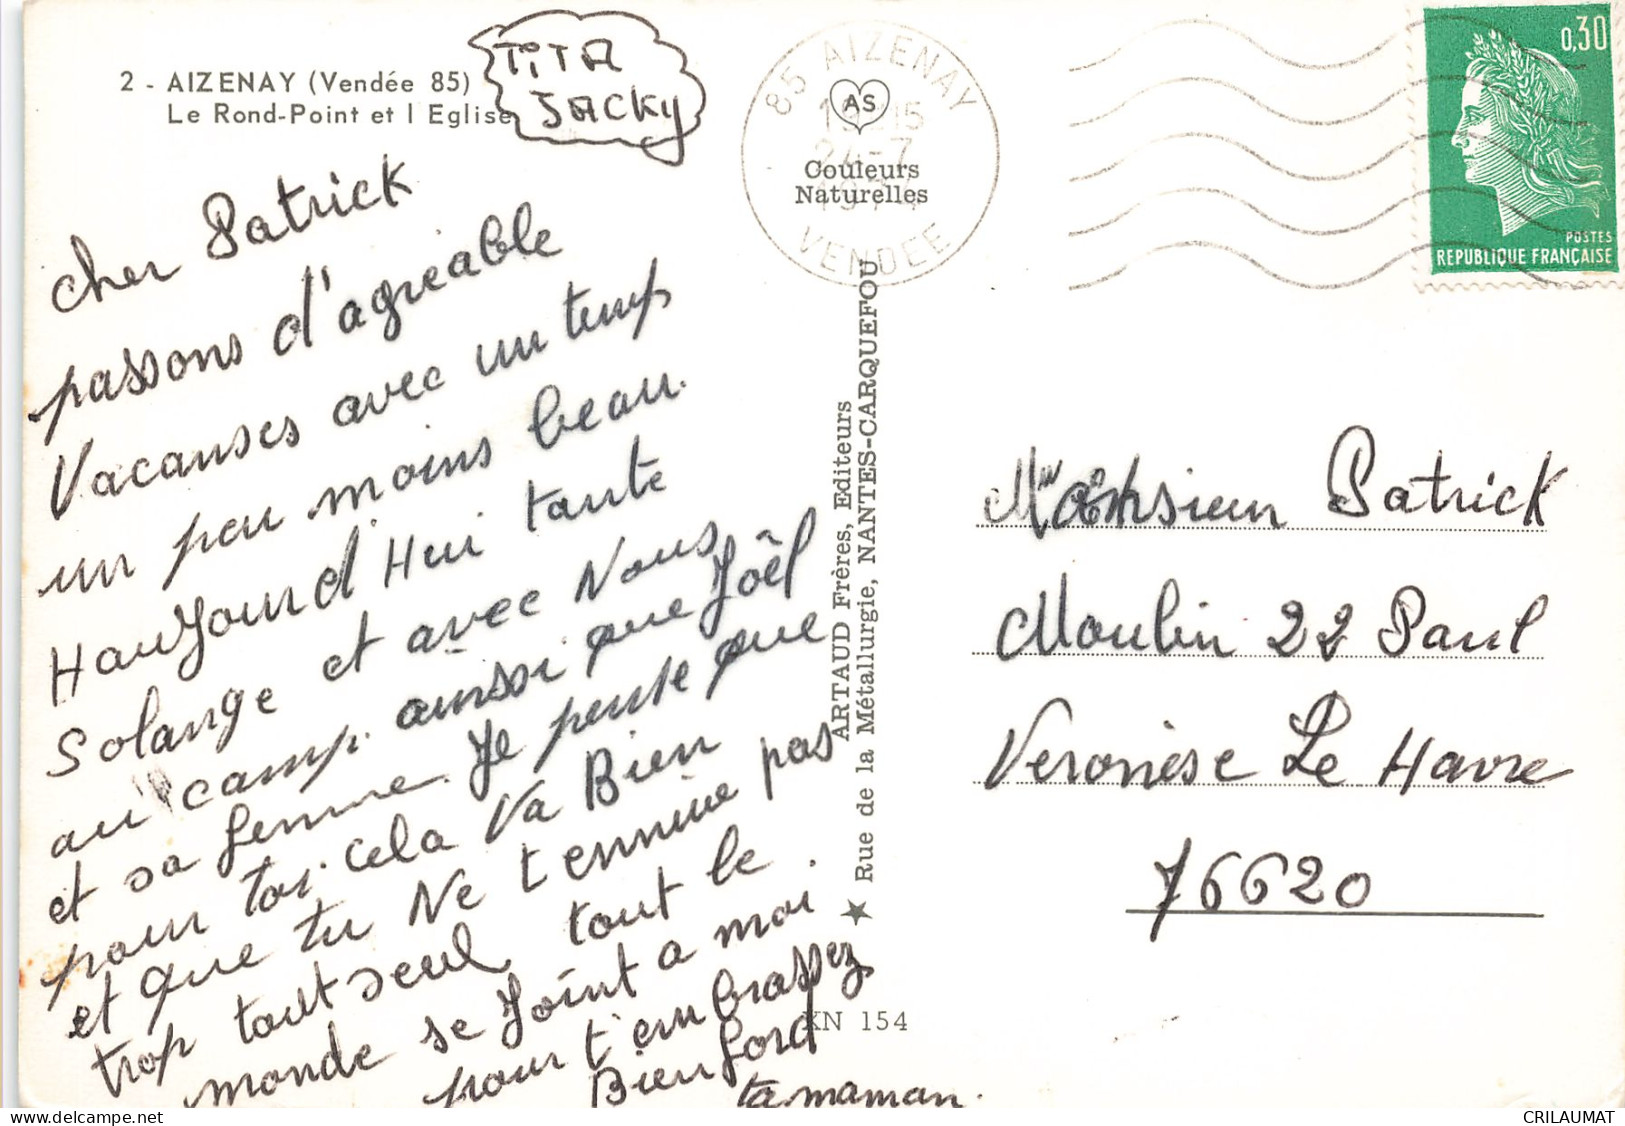 2 - AIZENAY (Vendée 85)
Le Rond-Point et l Eglise
TITA
JACKY
cher Patrick
passons d'agreable
Vacanses avec un temp
un peu moins beau.
HauJourd Hui tante
Solange et avec Nous
au camp. ainsi que Joêl
et sa femme. Je pense que
pour toi. cela Va Bien
et que tu Ne t ennuie pas
trop tout seul tout le
monde se Joint a moi.
pour t'embrassez
Bien ford
ta maman.
85 AIZENAY
19-15
24-7
VENDEE
AS
Couleurs
Naturelles
ARTAUD Frères, Editeurs
Rue de la Métallurgie, NANTES-CARQUEFOU
KN 154
0,30
POSTES
REPUBLIQUE FRANÇAISE
Monsieur Patrick
Moulin 22 Paul
Veronèse Le Havre
76620
CRILAUMAT